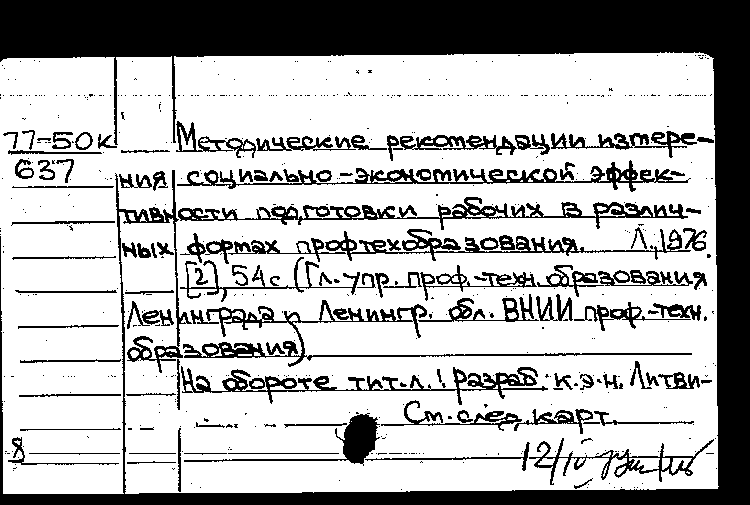 77-50к
637
Методические рекомендации измере-
ния социально-экономической эффек-
тивности подготовки рабочих в различ-
ных формах профтехобразования. Л., 1976.
[2], 54 с (Гл. упр. проф.-техн. образования
Ленинграда и Ленингр. обл. ВНИИ проф.-техн.
образования).
На обороте тит. л.: Разраб. к.э.н. Литви-
См. след. карт.
8
12/IV